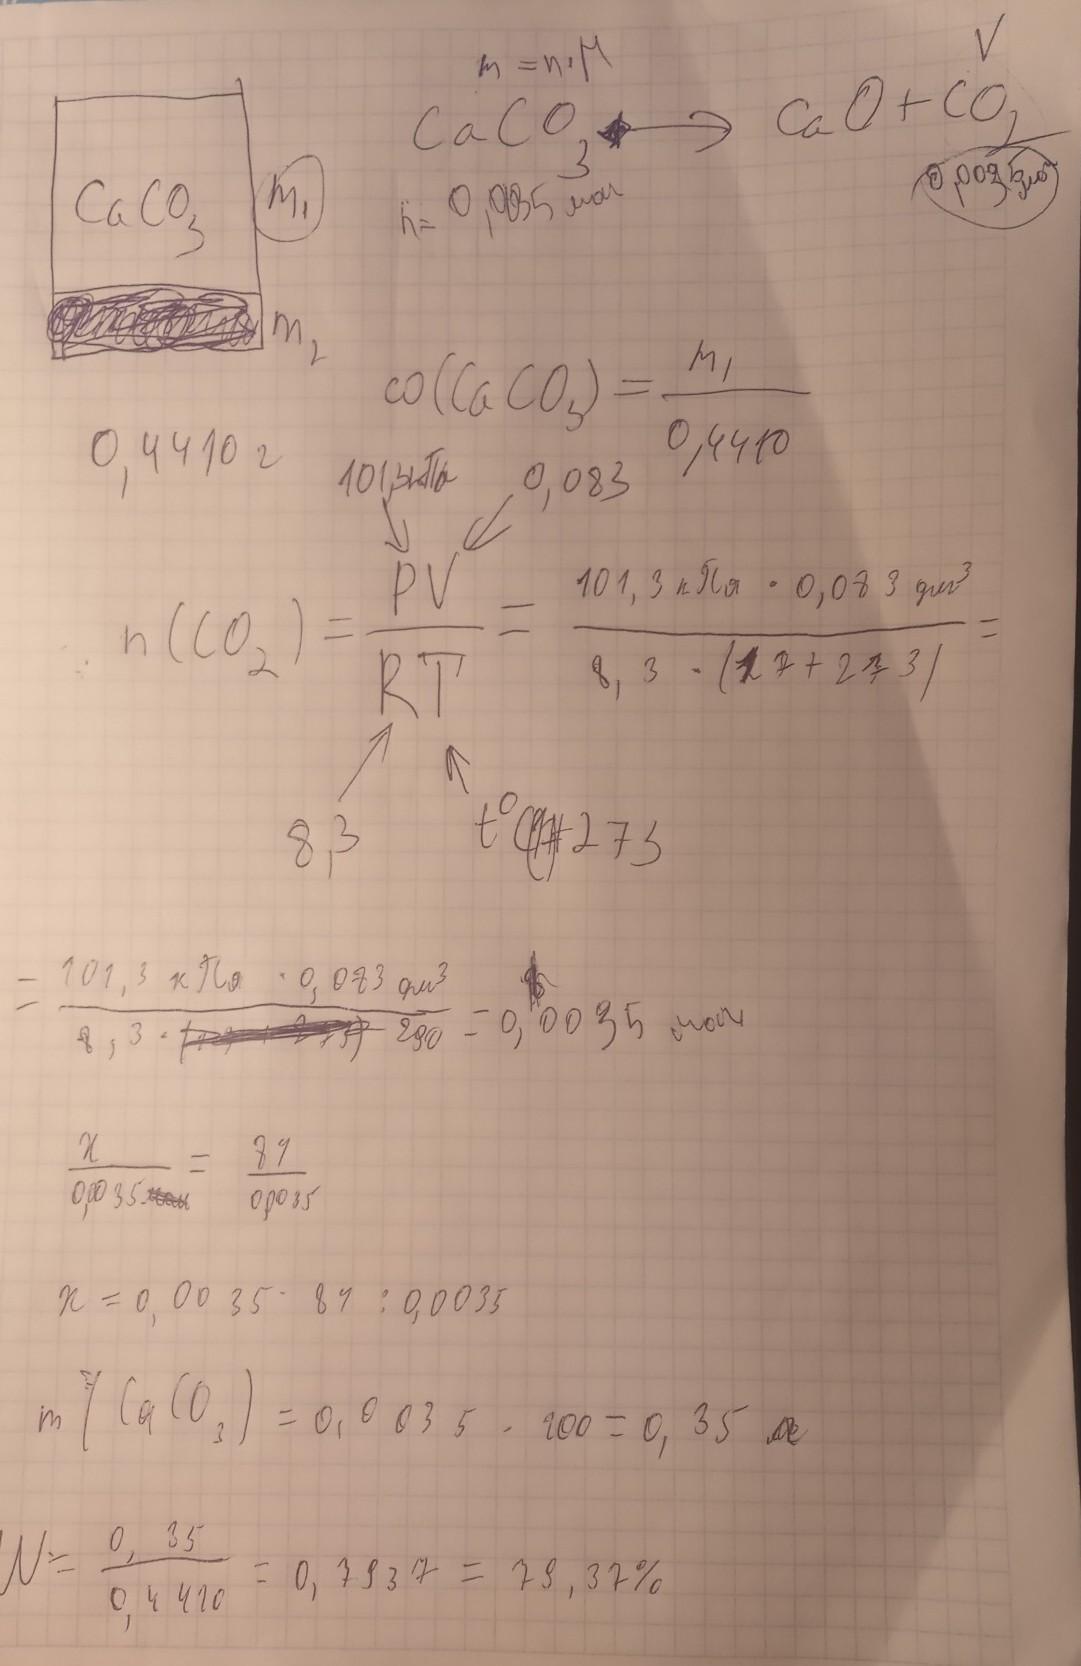 m = n·M
V
CaCO₃ → CaO + CO₂
0,0035 мол
n = 0,0035 мол
CaCO₃
m₁
m₂
ω(CaCO₃) = m₁ / 0,4410
0,4410 г
101,3 кПа
0,083
n(CO₂) = PV / RT = 101,3 кПа · 0,083 дм³ / 8,3 · (17 + 273) =
8,3
t° 273
= 101,3 кПа · 0,083 дм³ / 8,3 · 290 = 0,0035 мол
x / 0,0035 = 81 / 0,0035
x = 0,0035 · 81 : 0,0035
m (CaCO₃) = 0,0035 · 100 = 0,35
W = 0,35 / 0,4410 = 0,7937 = 79,37%